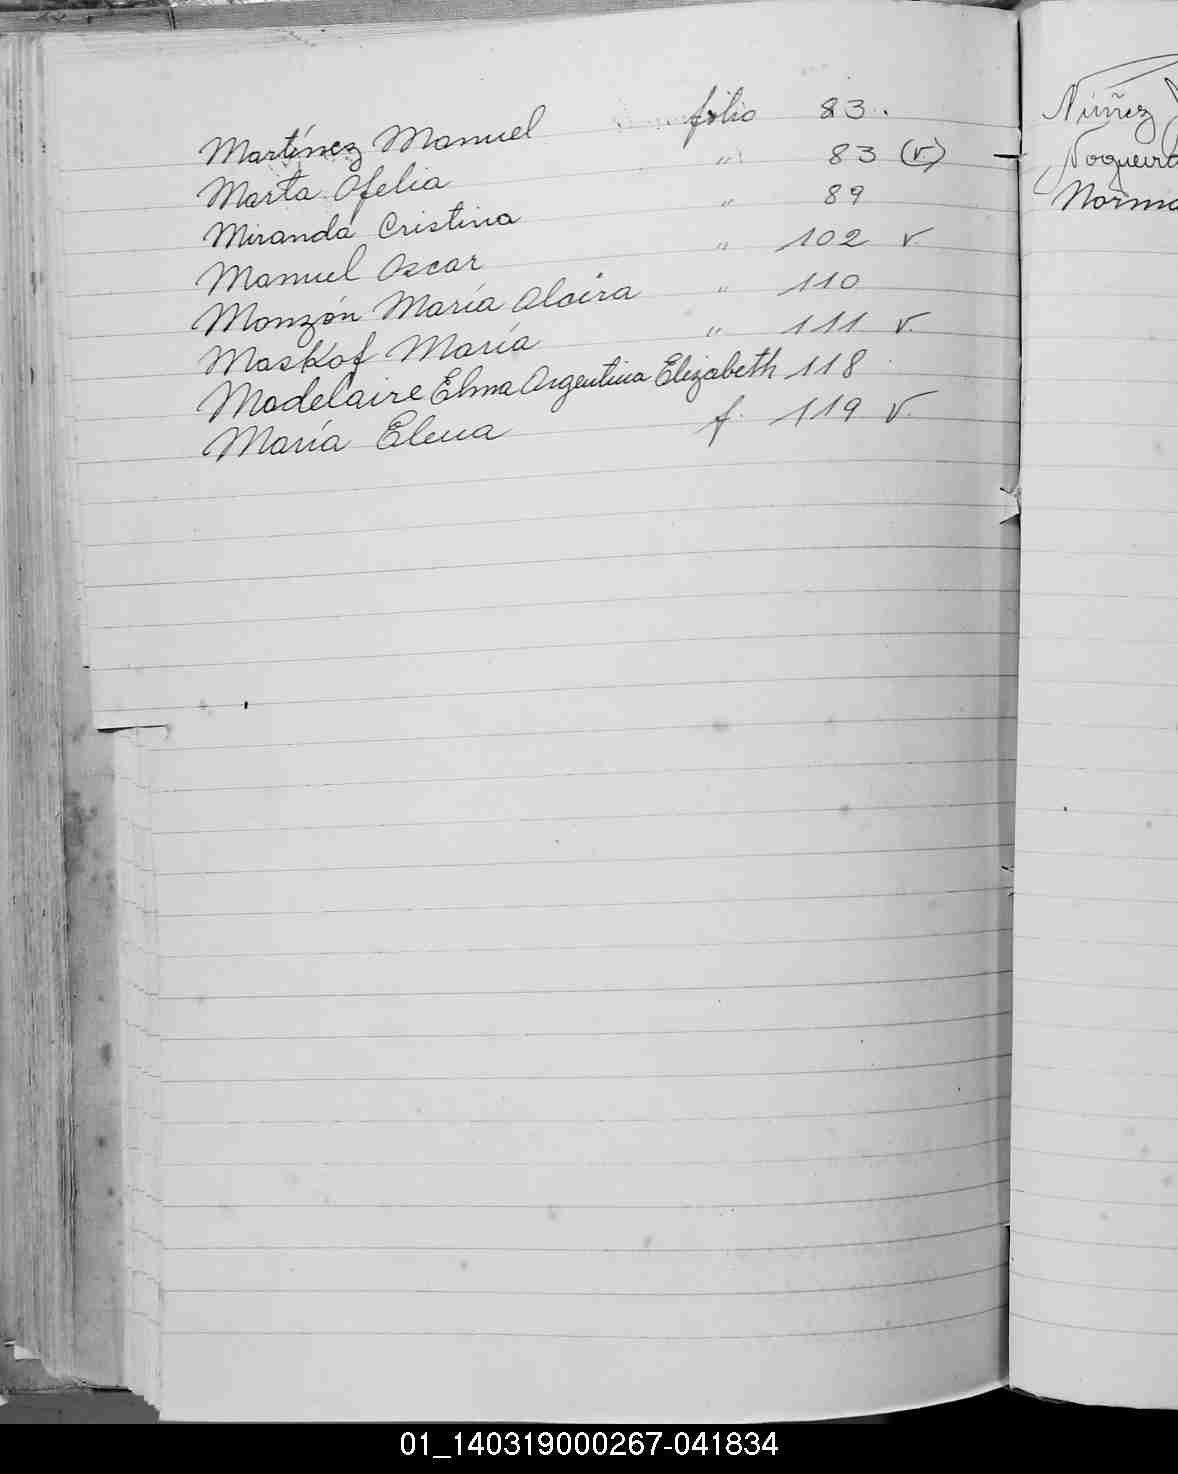 Martínez Manuel folio 83.
Marta Ofelia " 83 (v)
Miranda Cristina " 89
Manuel Oscar " 102 v.
Monzón María Alcira " 110
Maskof María " 111 v.
Madelaire Elma Argentina Elizabeth 118
María Elena f. 119 v.
Núñez
Nogueira
Norma
01_140319000267-041834